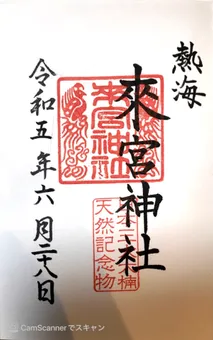 熱海
來宮神社
來宮神社
天然記念物
令和五年六月二十八日
CamScannerでスキャン